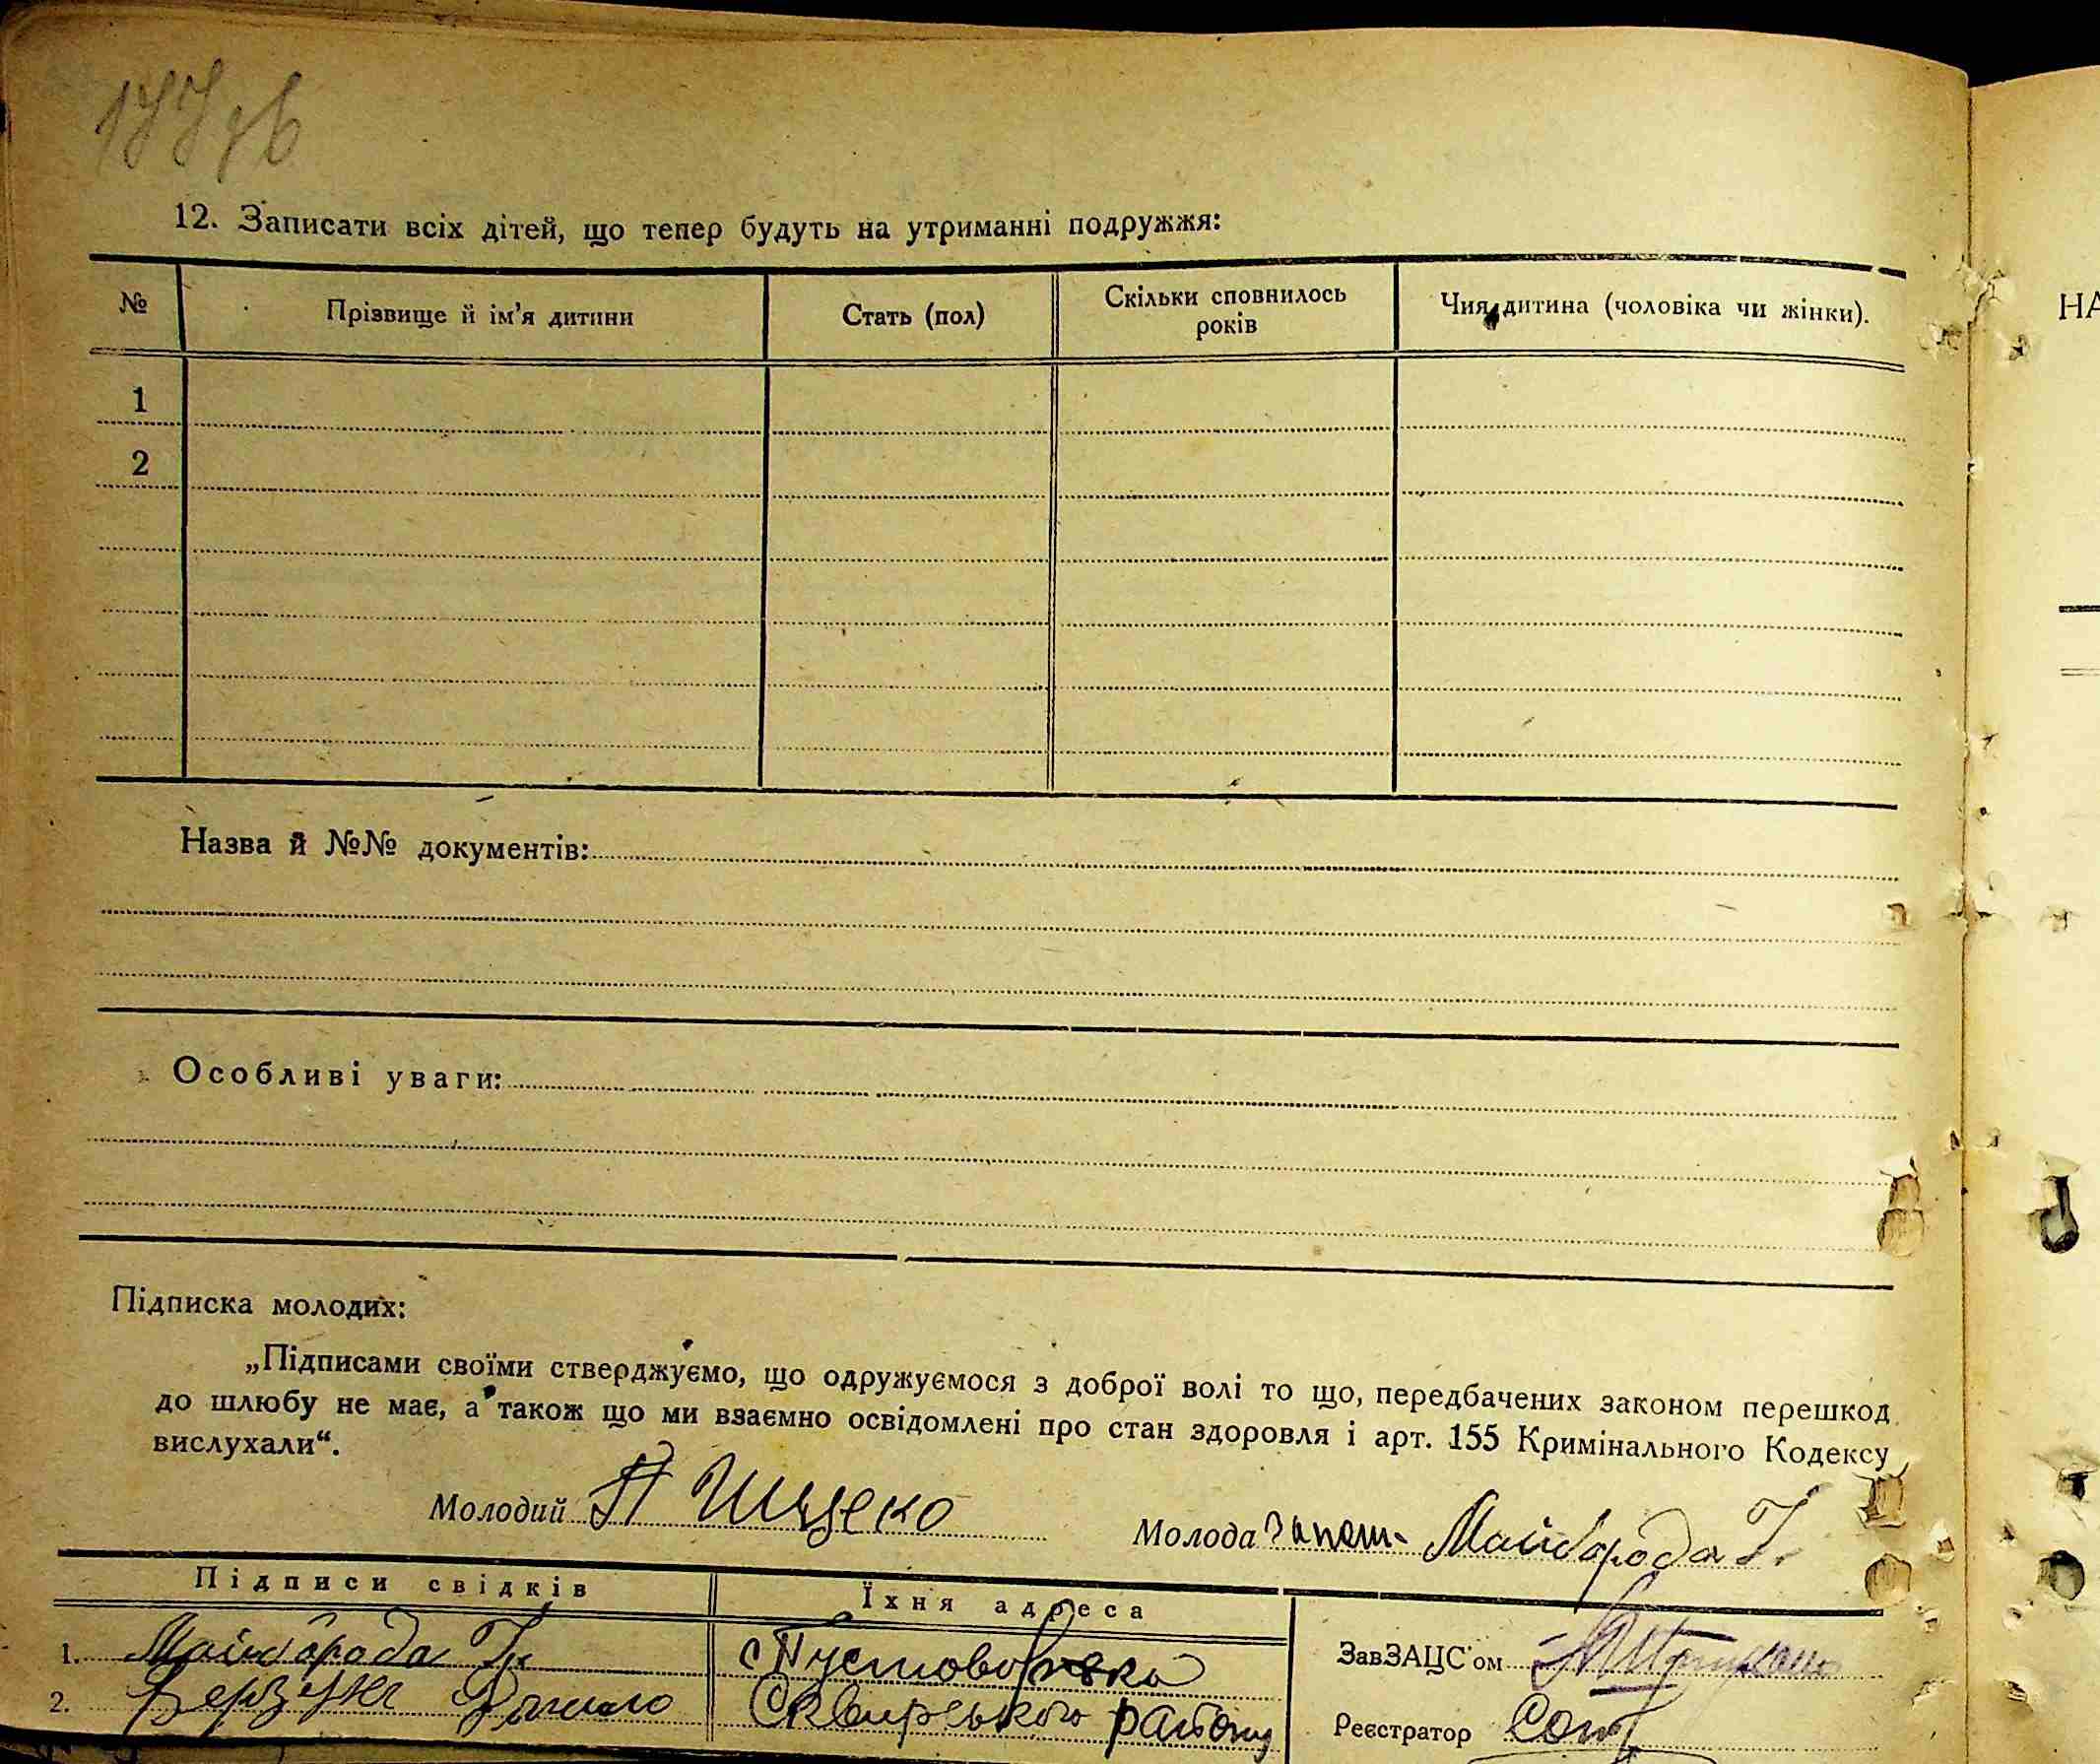 177 зв
12. Записати всіх дітей, що тепер будуть на утриманні подружжя:
№ Прізвище й ім'я дитини Стать (пол) Скільки сповнилось років Чия дитина (чоловіка чи жінки).
1
2
Назва й №№ документів:
Особливі уваги:
Підписка молодих:
„Підписами своїми стверджуємо, що одружуємося з доброї волі то що, передбачених законом перешкод
до шлюбу не має, а також що ми взаємно освідомлені про стан здоровля і арт. 155 Кримінального Кодексу
вислухали“.
Молодий П Ищеко Молода Майборода Г.
Підписи свідків Їхня адреса
1. Майборода Г. с Пустоворівка ЗавЗАЦС'ом
2. Сквирського району Реєстратор
НА